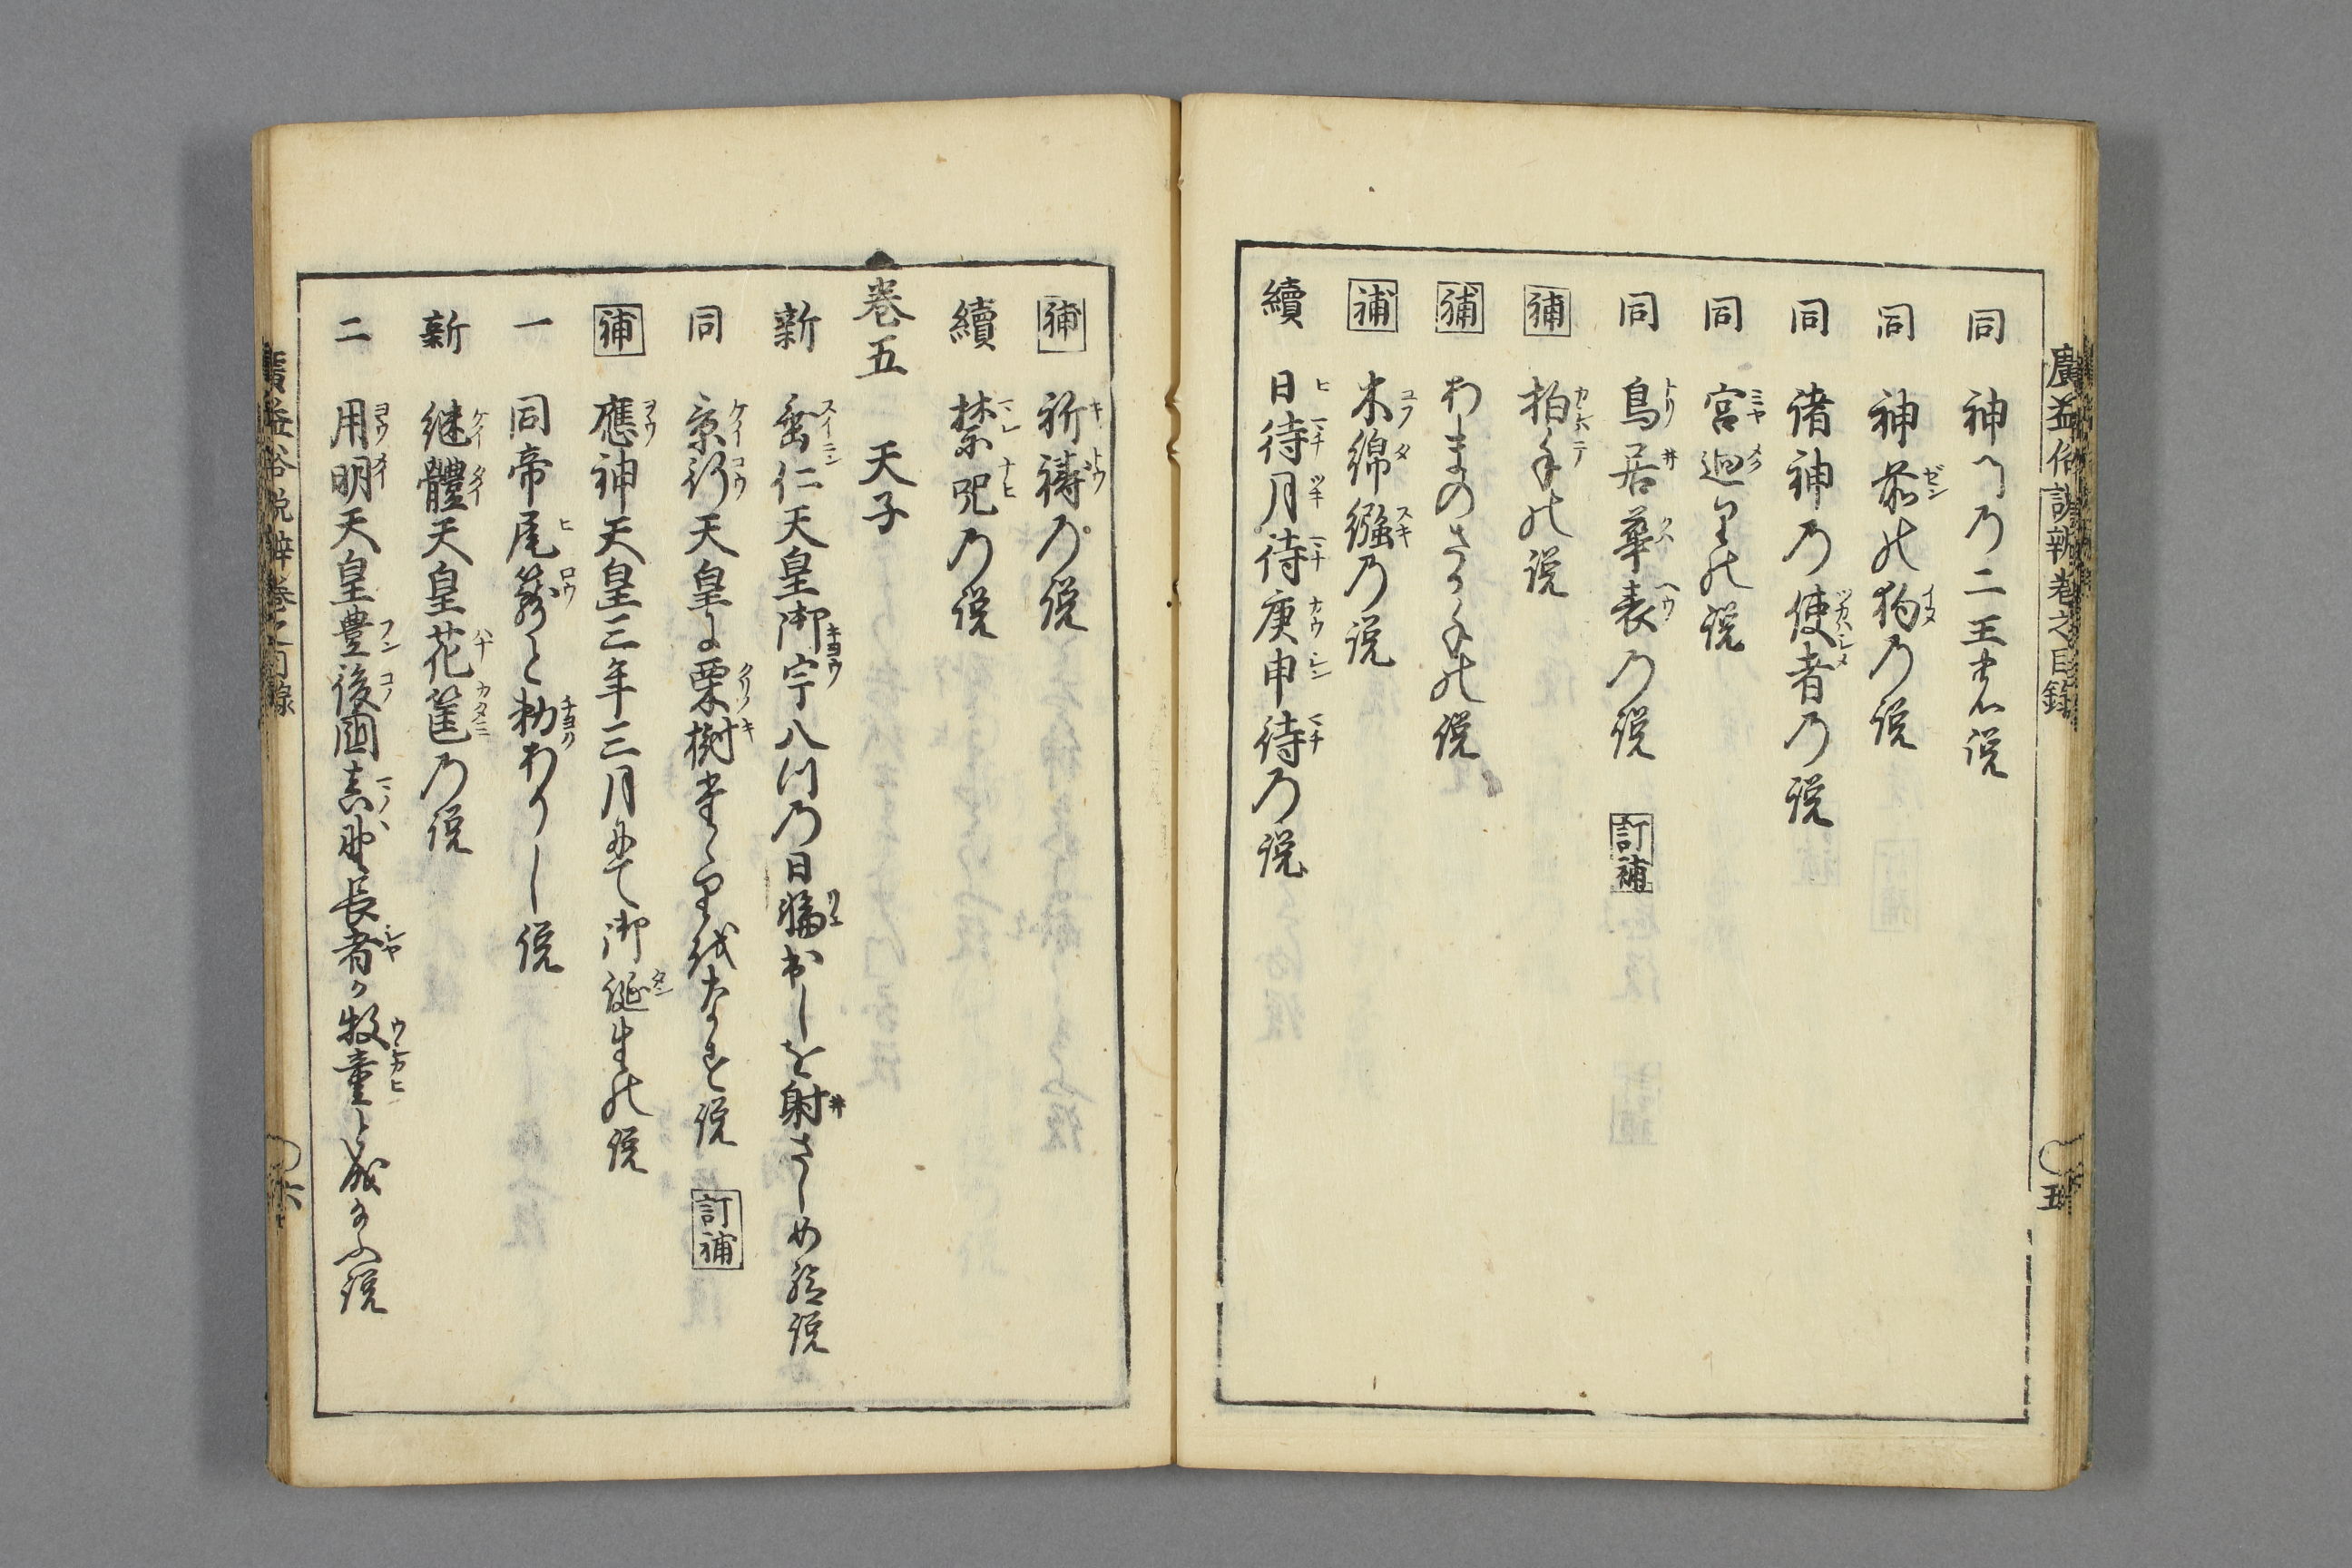 廣益俗說辨卷之目錄
五
同 神門乃二王乃説
同 神前の狗乃説
同 諸神乃使者乃説
同 宮廻りの説
同 鳥居華表乃説 訂補
補 拍手の説
補 あまのさか手の説
補 木綿繦乃説
續 日待月待庚申待乃説
補 祈禱乃説
續 禁呪乃説
巻五 天子
新 垂仁天皇御宇八つ乃日輪出しを射さしめ給説
同 景行天皇の栗樹
訂補
補 應神天皇三年三月にて御誕生の説
一 同帝尾籠と勅ありし説
新 継體天皇花筐乃説
二 用明天皇豊後國真野長者か牧童と成給ふ説
廣益俗說辨卷之目錄
六